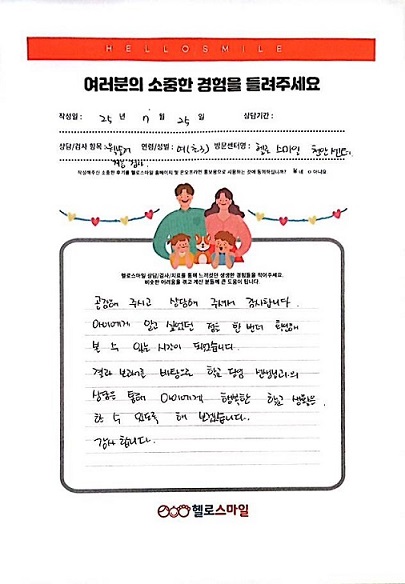 HELLOSMILE
여러분의 소중한 경험을 들려주세요
작성일 : 25 년 11 월 25 일 상담기간 :
상담/검사 항목 : 연령/성별 : 여(초3) 방문센터명 : 헬로 스마일 천안센터
작성해주신 소중한 후기를 헬로스마일 홈페이지 및 온오프라인 홍보용으로 사용하는 것에 동의하십니까? 네 아니요
헬로스마일 상담/검사/치료를 통해 느끼셨던 생생한 경험들을 적어주세요.
비슷한 어려움을 겪고 계신 분들께 큰 도움이 됩니다.
공감해 주시고 상담해 주셔서 감사합니다.
아이에게 알고 싶었던 점을 한 번 더
볼 수 있는 시간이 되었습니다.
결과 보고서를 바탕으로 학교 담임 선생님과의
상담을 통해 아이에게 행복한 학교 생활을
할 수 있도록 해 보겠습니다.
감사합니다.
헬로스마일